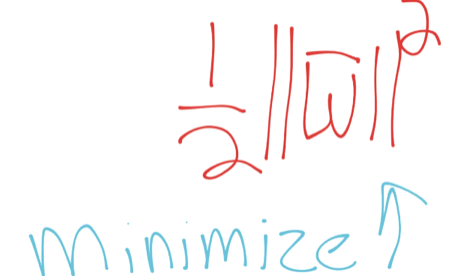 1/2 ||w̅||²
minimize ↑